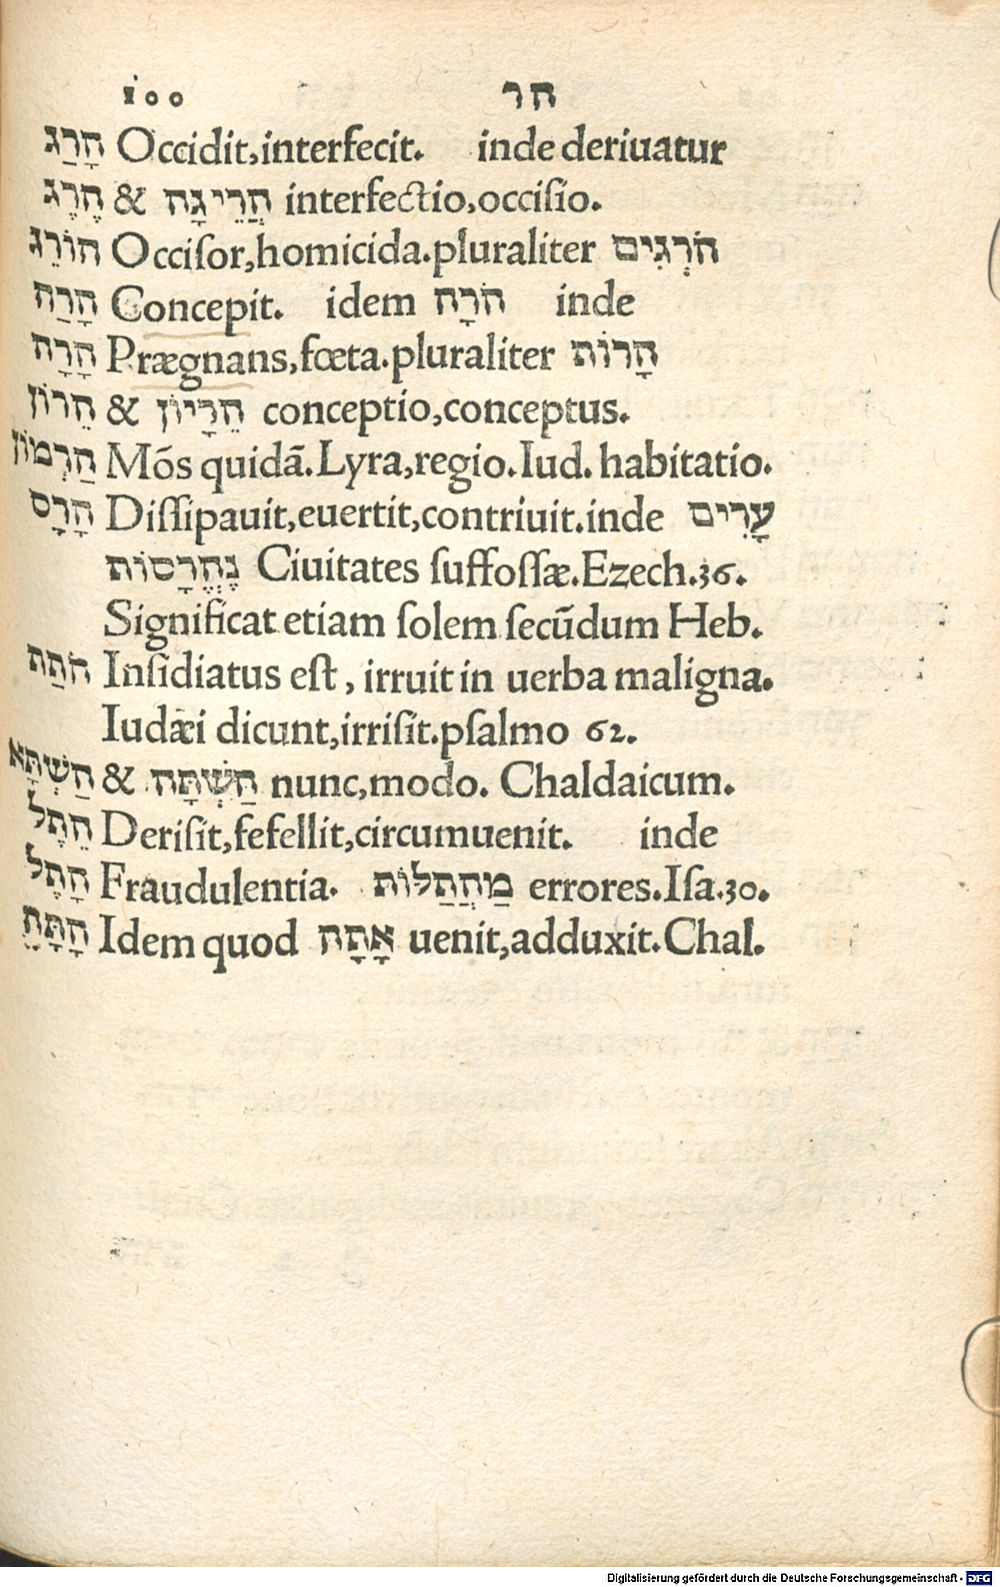 100 הר
הָרַג Occidit,interfecit. inde deriuatur
הֶרֶג & הֲרֵיגָה interfectio,occiſio.
הוֹרֵג Occiſor,homicida.pluraliter הֹרְגִים
הָרַה Concepit. idem הֹרָה inde
הָרָה Prægnans,fœta.pluraliter הָרוֹת
הֵרוֹן & הֵרָיוֹן conceptio,conceptus.
הַרְמוֹן Mōs quidã.Lyra,regio.Iud. habitatio.
הָרָס Diſſipauit,euertit,contriuit.inde עָרִים
נֶהֱרָסוֹת Ciuitates ſuffoſſæ.Ezech.36.
Significat etiam ſolem ſecūdum Heb.
הֹתַת Inſidiatus eſt, irruit in uerba maligna.
Iudæi dicunt,irriſit.pſalmo 62.
הַשְׁתָּא & הַשְׁתָּה nunc,modo. Chaldaicum.
הֵתֶל Deriſit,fefellit,circumuenit. inde
הָתֶל Fraudulentia. מַהֲתַלּוֹת errores.Iſa.30.
הָתָּה Idem quod אָתָה uenit,adduxit.Chal.
Digitalisierung gefördert durch die Deutsche Forschungsgemeinschaft - DFG